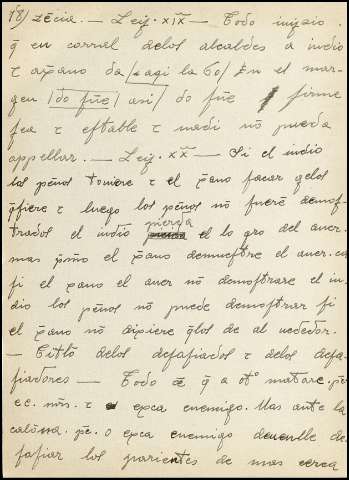 18) zēcia. — Leij. xıx̄ — Todo iuȳzio
q̄ en corral delos alcaldes a iudio
τ ax̄ano da / aqi la 60 / En el mar-
gen / do fue / asi / do fue firme
fea τ estable τ nadi nō pueda
appellar. — Leij. xx̄ — Si el iudio
los pēnos touiere τ el x̄ano sacar gelos
q̄siere τ luego los pēnos nō fuerē demos-
trados el iudio pierda el lo gro del auer.
mas p̄mo el x̄ano demuestre el auer. ca
si el x̄ano el auer nō demostrare el iu-
dio los pēnos nō puede demostrar si
el x̄ano nō dixiere q̄los de al uededor.
— Titlo delos desafiados τ delos desa-
fiadores — Todo ōe q̄ a otº matare. p̄e
ec. nr̄s. τ exca enemigo. Mas ante la
calōna. pē. o exca enemigo deuenlle de
safiar los parientes de mas cerca